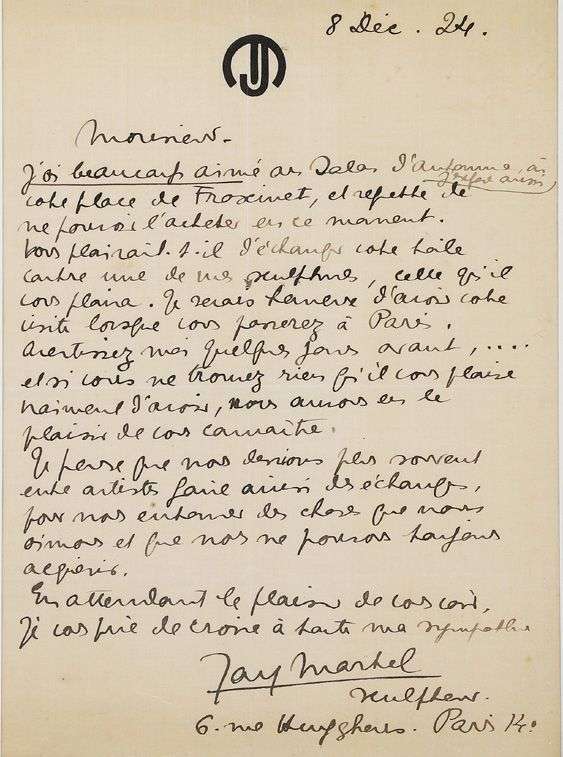 8 Déc. 24.
JM
Monsieur -
J'ai beaucoup aimé au Salon d'Automne, où
j'expose aussi
votre place de Froxinet, et regrette de
ne pouvoir l'acheter en ce moment.
Vous plairait-il d'échanger votre toile
contre une de mes sculptures, celle qu'il
vous plaira. Je serais heureux d'avoir votre
visite lorsque vous passerez à Paris.
Avertissez moi quelques jours avant, ....
et si vous ne trouvez rien qu'il vous plaise
vraiment d'avoir, nous aurons eu le
plaisir de vous connaître.
Je pense que nous devrions plus souvent
entre artistes faire ainsi des échanges,
pour nous entourer des choses que nous
aimons et que nous ne pouvons toujours
acquérir.
En attendant le plaisir de vous voir,
Je vous prie de croire à toute ma sympathie
Jan Martel
sculpteur.
6. rue Huyghens. Paris 14e